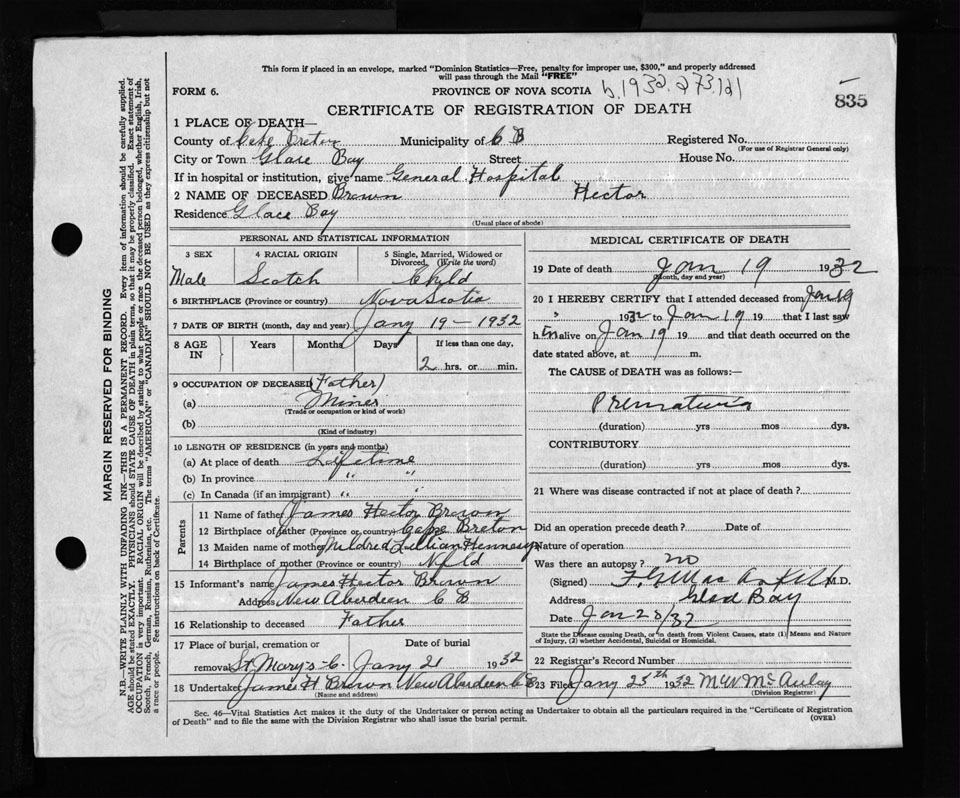 This form if placed in an envelope, marked "Dominion Statistics—Free, penalty for improper use, $300," and properly addressed
will pass through the Mail "FREE"
FORM 6.
PROVINCE OF NOVA SCOTIA
b. 1932. 273121
835
CERTIFICATE OF REGISTRATION OF DEATH
1 PLACE OF DEATH—
County of Cape Breton Municipality of C B Registered No.
(For use of Registrar General only)
City or Town Glace Bay Street House No.
If in hospital or institution, give name General Hospital
2 NAME OF DECEASED Brown Hector
Residence Glace Bay
(Usual place of abode)
PERSONAL AND STATISTICAL INFORMATION
3 SEX 4 RACIAL ORIGIN 5 Single, Married, Widowed or
Divorced. (Write the word)
Male Scotch Child
6 BIRTHPLACE (Province or country) Nova Scotia
7 DATE OF BIRTH (month, day and year) Jany 19 - 1932
8 AGE IN Years Months Days If less than one day,
2 hrs. or min.
9 OCCUPATION OF DECEASED (Father)
(a) Miner
(Trade or occupation or kind of work)
(b)
(Kind of industry)
10 LENGTH OF RESIDENCE (in years and months)
(a) At place of death Lifetime
(b) In province " "
(c) In Canada (if an immigrant) " "
Parents
11 Name of father James Hector Brown
12 Birthplace of father (Province or country) Cape Breton
13 Maiden name of mother Mildred Lillian Hennesy
14 Birthplace of mother (Province or country) Nfld
15 Informant's name James Hector Brown
Address New Aberdeen C B
16 Relationship to deceased Father
17 Place of burial, cremation or Date of burial
removal St Mary's C. Jany 21 1932
18 Undertaker James H Brown New Aberdeen C B
(Name and address)
MEDICAL CERTIFICATE OF DEATH
19 Date of death Jan 19 1932
(month, day and year)
20 I HEREBY CERTIFY that I attended deceased from Jan 19
" 1932 to Jan 19 19 that I last saw
h im alive on Jan 19 19 and that death occurred on the
date stated above, at m.
The CAUSE of DEATH was as follows:—
(duration) yrs mos dys.
CONTRIBUTORY
(duration) yrs mos dys.
21 Where was disease contracted if not at place of death?
Did an operation precede death? Date of
Nature of operation
Was there an autopsy? no
(Signed) M.D.
Address Glace Bay
Date Jan 28/32
State the Disease causing Death, or in death from Violent Causes, state (1) Means and Nature
of Injury, (2) whether Accidental, Suicidal or Homicidal.
22 Registrar's Record Number
23 Filed Jany 25th 1932 McAulay
(Division Registrar)
Sec. 46—Vital Statistics Act makes it the duty of the Undertaker or person acting as Undertaker to obtain all the particulars required in the "Certificate of Registration
of Death" and to file the same with the Division Registrar who shall issue the burial permit.
(OVER)
MARGIN RESERVED FOR BINDING
N.B.—WRITE PLAINLY WITH UNFADING INK—THIS IS A PERMANENT RECORD. Every item of information should be carefully supplied.
AGE should be stated EXACTLY. PHYSICIANS should STATE CAUSE OF DEATH in plain terms, so that it may be properly classified. Exact statement of
OCCUPATION is very important. RACIAL ORIGIN will be described by stating to what people or race the deceased person belonged, whether English, Irish,
Scotch, French, German, Russian, Ruthenian, etc. The terms "AMERICAN" or "CANADIAN" SHOULD NOT BE USED as they express citizenship but not
a race or people. See instructions on back of Certificate.